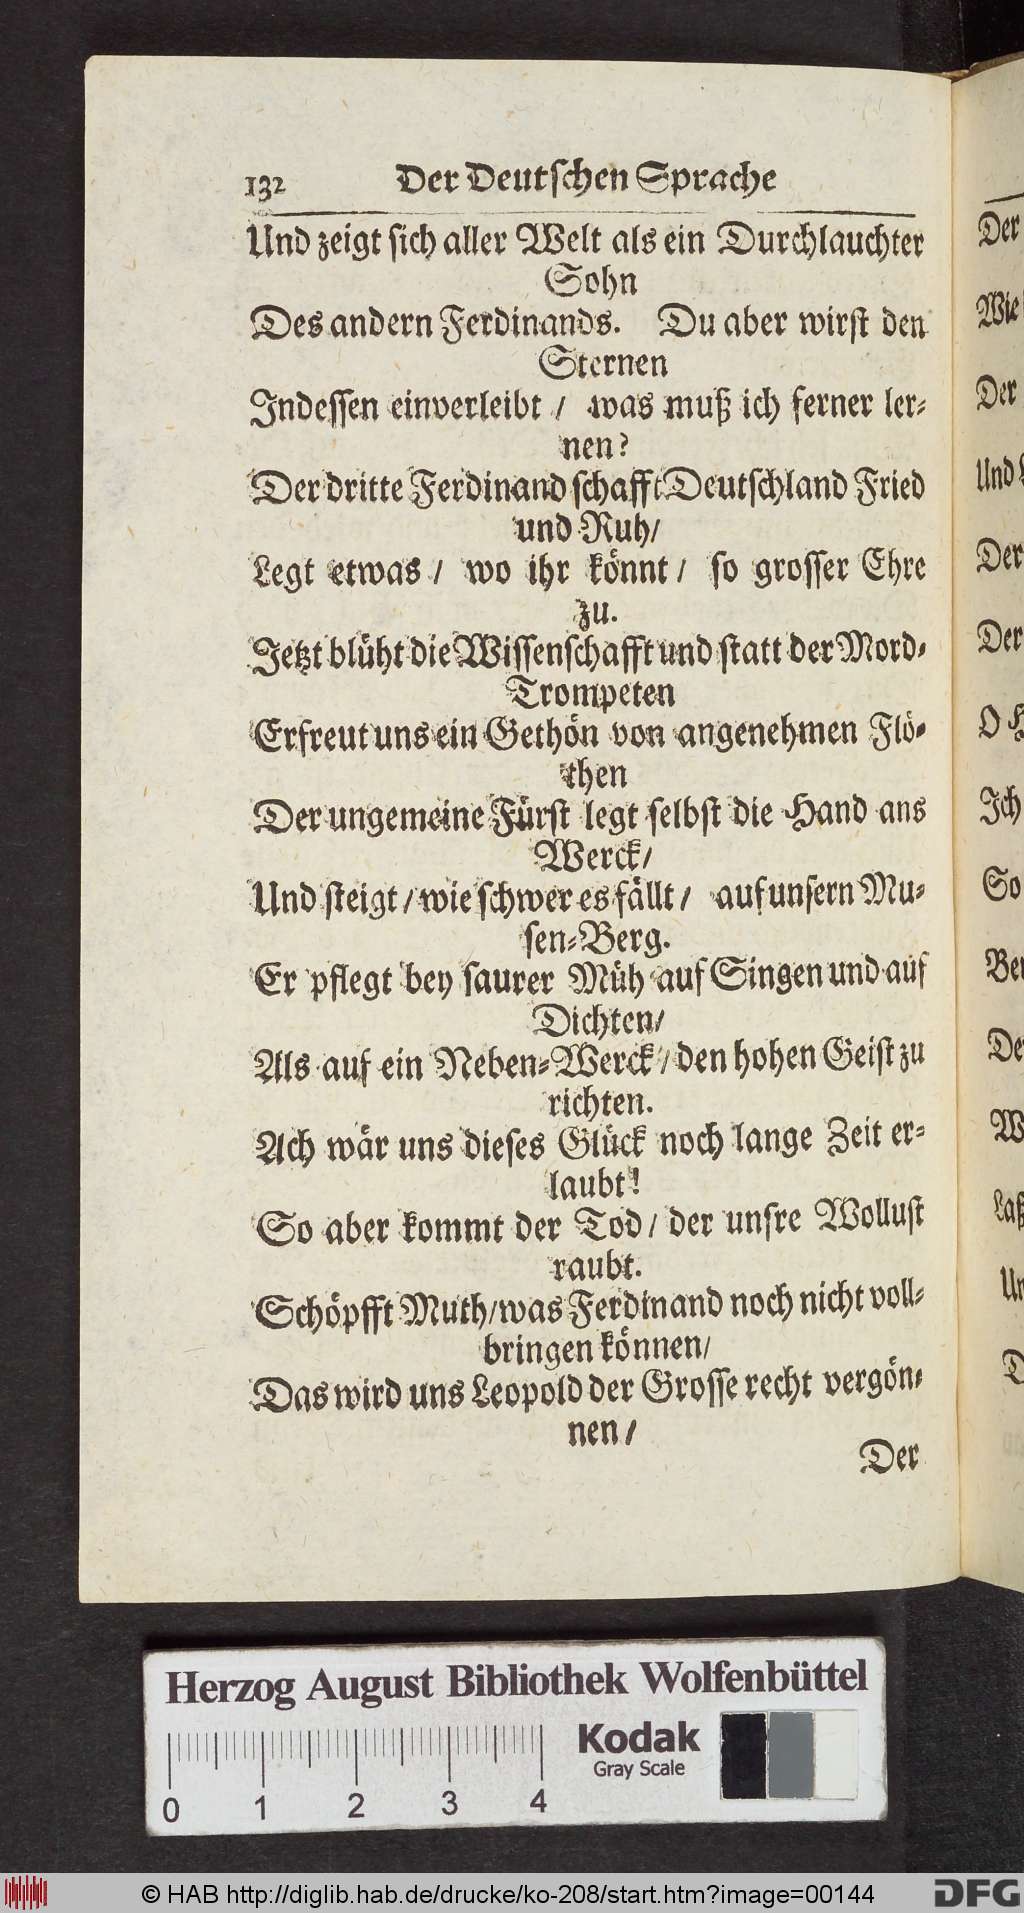 132 Der Deutschen Sprache
Und zeigt sich aller Welt als ein Durchlauchter
Sohn
Des andern Ferdinands. Du aber wirst den
Sternen
Indessen einverleibt / was muß ich ferner ler-
nen?
Der dritte Ferdinand schafft Deutschland Fried
und Ruh/
Legt etwas / wo ihr könnt / so grosser Ehre
zu.
Jetzt blüht die Wissenschafft und statt der Mord-
Trompeten
Erfreut uns ein Gethön von angenehmen Flö-
then
Der ungemeine Fürst legt selbst die Hand ans
Werck/
Und steigt / wie schwer es fällt / auf unsern Mu-
sen-Berg.
Er pflegt bey saurer Müh auf Singen und auf
Dichten/
Als auf ein Neben-Werck / den hohen Geist zu
richten.
Ach wär uns dieses Glück noch lange Zeit er-
laubt!
So aber kommt der Tod / der unsre Wollust
raubt.
Schöpfft Muth/was Ferdinand noch nicht voll-
bringen können/
Das wird uns Leopold der Grosse recht vergön-
nen /
Der
Der
Wie
Der
Und
Der
Der
O
Ich
So
Laß
Herzog August Bibliothek Wolfenbüttel
Kodak
Gray Scale
0 1 2 3 4
© HAB http://diglib.hab.de/drucke/ko-208/start.htm?image=00144
DFG